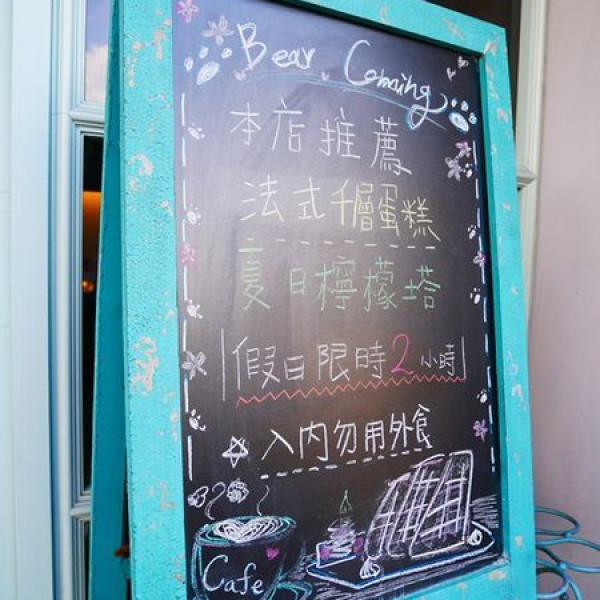 Bear Coming
本店推薦
法式千層蛋糕
夏日檸檬塔
假日限時2小時
入內勿用外食
Cafe